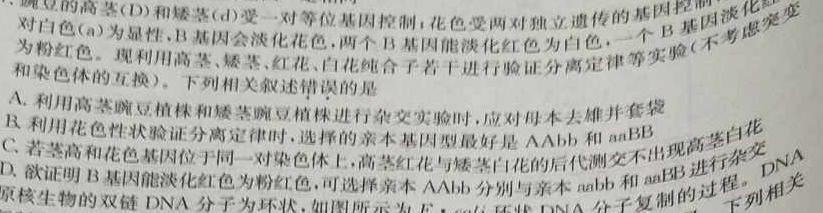 豌豆的高茎(D)和矮茎(d)受一对等位基因控制,花色受两对独立遗传的基因控制
对白色(a)为显性,B基因会淡化花色,两个B基因能淡化红色为白色,一个B基因淡化红
为粉红色。现利用高茎、矮茎、红花、白花纯合子若干进行验证分离定律等实验(不考虑突变
和染色体的互换)。下列相关叙述错误的是
A. 利用高茎豌豆植株和矮茎豌豆植株进行杂交实验时,应对母本去雄并套袋
B. 利用花色性状验证分离定律时,选择的亲本基因型最好是AAbb和aaBB
C. 若茎高和花色基因位于同一对染色体上,高茎红花与矮茎白花的后代测交不出现高茎白花
D. 欲证明B基因能淡化红色为粉红色,可选择亲本AAbb分别与亲本aabb和aaBB进行杂交
原核生物的双链DNA分子为环状,如图所示为 环状DNA分子复制的过程。下列相关
DNA